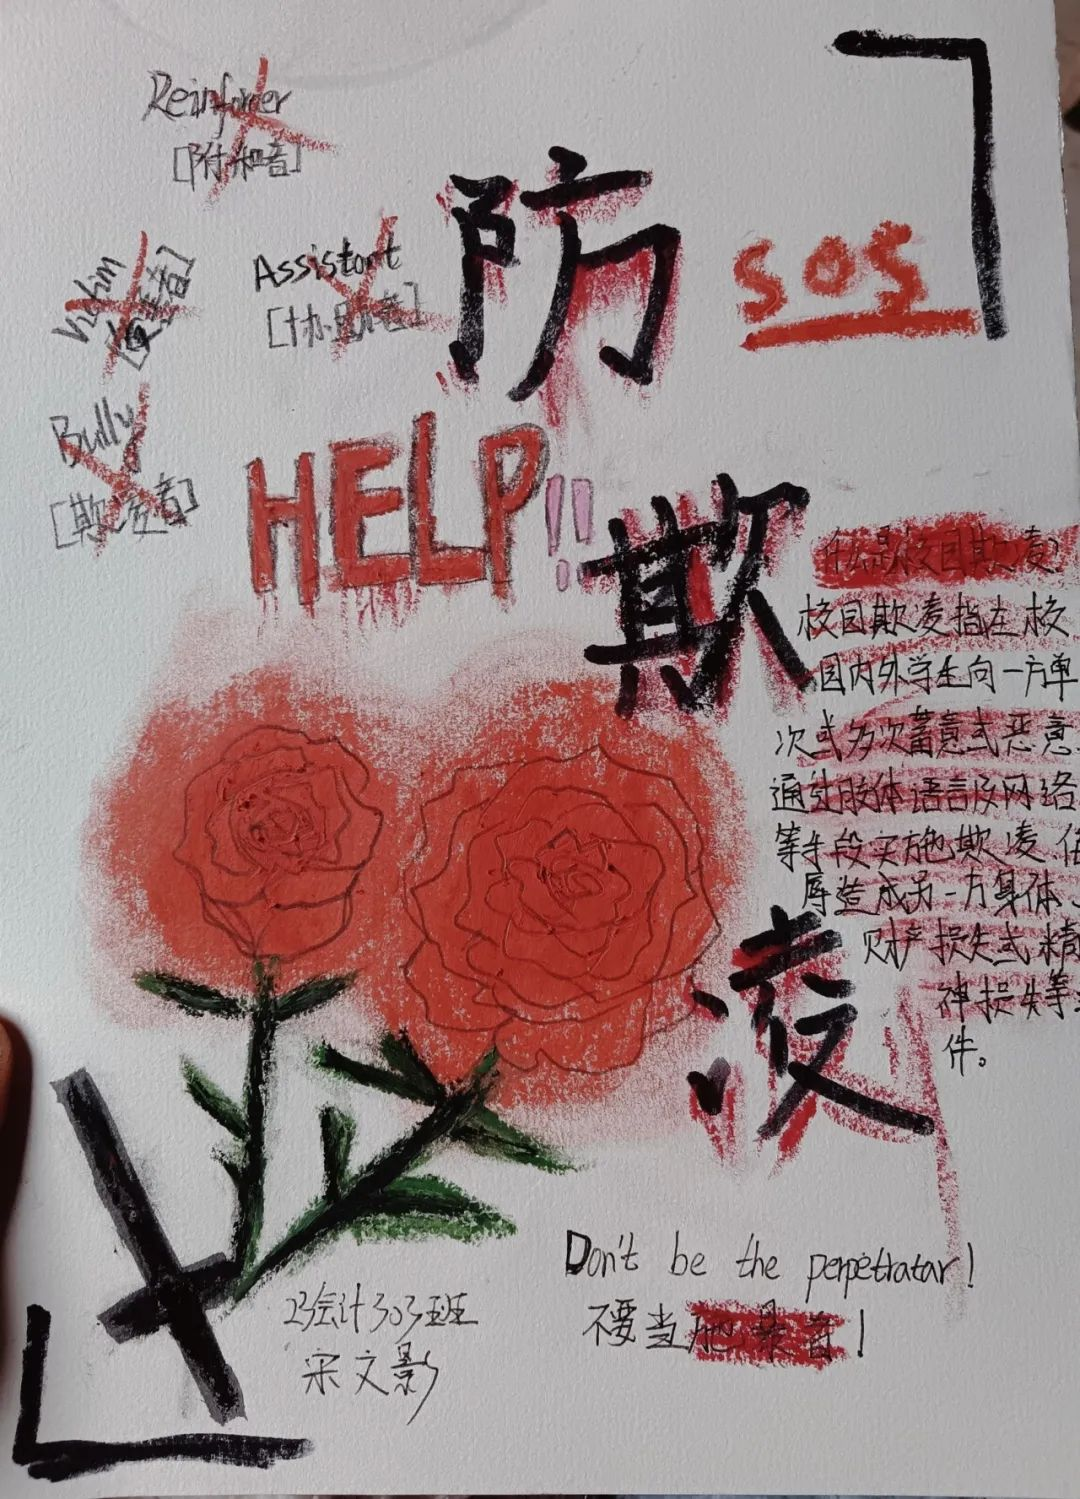 Reinforcer
[附和者]
Victim
[受害者]
Assistant
[协助者]
Bully
[欺凌者]
防
SOS
HELP!!
欺
凌
什么是校园欺凌?
校园欺凌指在校
园内外学生向一方单
次或多次蓄意或恶意
通过肢体语言及网络
等手段实施欺凌
辱造成另一方身体、
财产损失或精
神损失等
件。
Don't be the perpetratar!
不要当施暴者!
23会计303班
宋文影